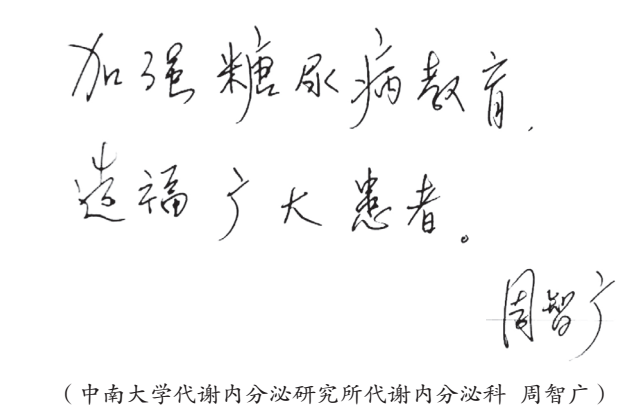 加强糖尿病教育,
造福广大患者。
周智广
(中南大学代谢内分泌研究所代谢内分泌科 周智广)